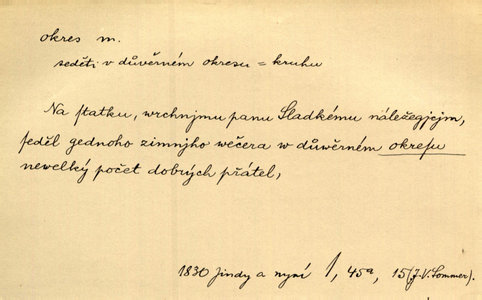 okres m.
seděti v důvěrném okresu = kruhu
Na ſtatku, wrchnjmu panu Sladkému náležegjcjm,
ſeděl gednoho zimnjho wečera w důwěrném okreſu
newelký počet dobrých přátel,
1830 Jindy a nynj 1, 45a, 15 (J. V. Sommer).